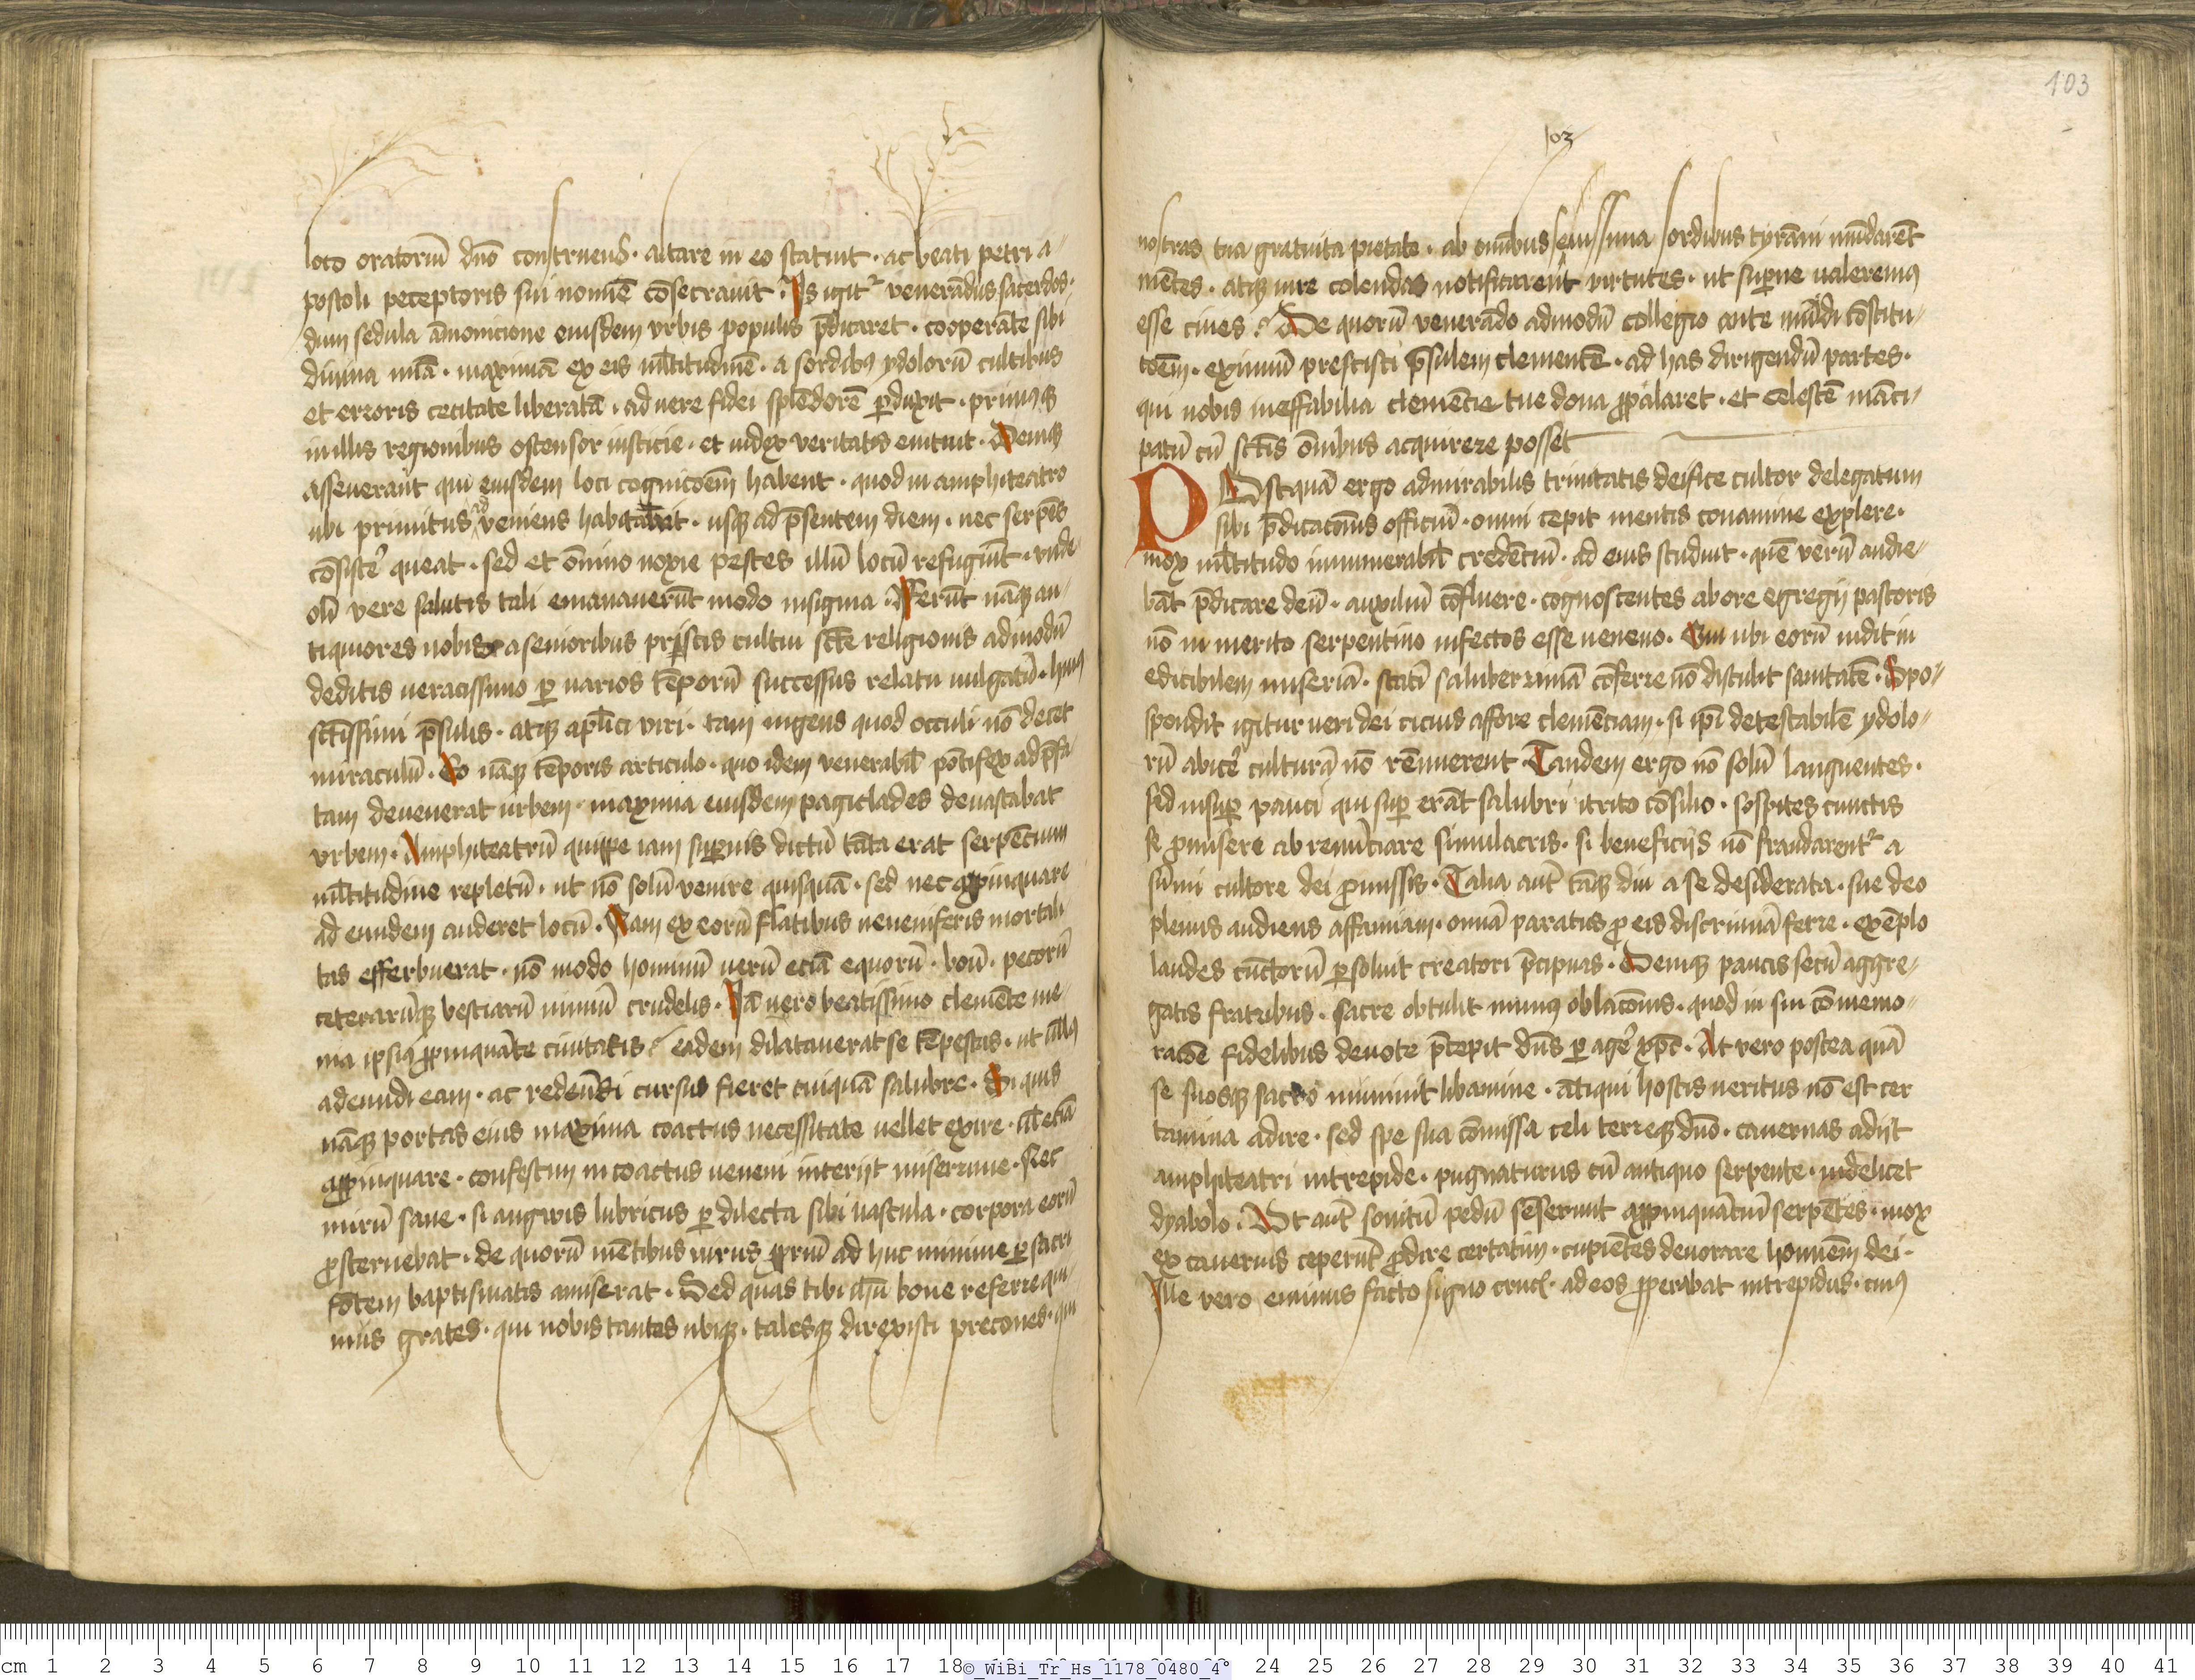 loco oratoriū dn̄o construens · altare in eo statuit · ac beati petri a-
postoli p̄ceptoris sui nomīe cōsecrauit · Is igit᷑ venerādus sacerdos ·
dum sedula āmonicione eiusdem vrbis populis p̄dicaret · cooperāte sibi
diuina mīa · maximā ex eis ml̄titudinē · a sordibꝰ ydolorū cultibus
et erroris cecitate liberatā · ad uere fidei splēdorē ꝑduxit · primusꝗ
in illis regionibus ostensor iusticie · et iudex veritatis enituit · Deniꝗ
asseuerant qui eiusdem loci cognicōem habent · quod in amphiteatro
ubi primitus adveniens habitabat · usꝗ ad p̄sentem diem · nec serpēs
cōsistē queat · sed et ōmino noxie pestes illū locū refugiūt · vnde
olī vere salutis tali emanauerūt modo insignia · Fferūt nāꝗ an-
tiquiores nobis a senioribus priscis cultui sctē religionis admodū
deditis ueracissimo ꝑ uarios tēporū successus relatu uulgatū · huiꝰ
sctīssimi p̄sulis · atꝗ apl̄ici viri · tam ingens quod occuli nō decet
miraculū · Eo nāꝗ tēporis articulo · quo idem venerabil̄ pōtifex ad p̄fa-
tam deuenerat urbem · maxima eiusdem pagi clades deuastabat
vrbem · Amphiteatrū quippe iam superius dictū tāta erat serpēcium
ml̄titudine repletū · ut nō solū venire quisquā · sed nec appinquare
ad eundem auderet locū · Nam ex eorū flatibus ueneniferis mortali
tas efferbuerat · nō modo hominū uerū eciā equorū · boū · pecorū
ceterarūꝗ bestiarū nimiū crudelis · Iā uero beatissimo clemēte me-
nia ipsiꝗ ꝓpinquāte ciuitatis eadem dilatauerat se tēpestas · ut ull̄ꝰ
adeundi eam · ac redeūdi cursus fieret cuiquā salubre · Si quis
nāꝗ portas eius maxima coactus necessitate uellet exire · ul̄ eciā
appinquare · confestim in coactus ueneni interijt miserrime · Nec
mirū sane · si anguis lubricus ꝑ dilecta sibi uascula · corpora eorū
ꝓsternebat · de quorū mētibus uirus ꝓpriū ad huc minime ꝑ sacri
fōtem baptismatis amiserat · Sed quas tibi ih̄u bone referre qui-
mus grates · qui nobis tantos ubiꝗ · talesꝗ direxisti precones · qui
103
103
nostras tua gratuita pietate · ab omībus seuissima sordibus tyrāni mūdarēt
mētes · atꝗ iure colendas notificarent virtutes · ut superne ualeremꝰ
esse ciues · De quorū venerādo admodū collegio ante mūdi cōstitu-
cōem · eximiū prescisti p̄sulem clementē · ad has dirigendū partes ·
qui nobis ineffabilia clemēcie tue dona ꝓpalaret · et celestē māci-
patū cū sctīs ōnibus acquirere posset
Postquā ergo admirabilis trinitatis deifice cultor delegatum
sibi p̄dicacōnis officiū · omni cepit mentis conamine explere ·
mox ml̄titudo innumerabil̄ credēciū · ad eius studuit · quē verū audie-
bāt p̄dicare deū · auxiliū cōfluere · cognoscentes ab ore egregij pastoris
nō in merito serpentino infectos esse ueneno · Qui ubi eorū uidit in
edicibilem miseriā · statī saluberrimā cōferre nō distulit sanitatē · Spo-
spondit igitur ueri dei cicius affore clemēciam · si ip̄i detestabilē ydolo-
rū abicē culturā nō rēnuerent Tandem ergo nō solū languentes ·
sed insuꝑ pauci qui suꝑ erāt salubri itrito cōsilio · sospites cunctis
se ꝓmisere ab renūciare simulacris · si beneficijs nō fraudarent᷑ a
sūmi cultore dei ꝓmissis · Talia aut̄ tāꝗ diu a se desiderata · sue deo
plenus audiens affamiam · omnā paratus ꝓ eis discriminā ferre · exēplo
laudes cūctorū ꝑsoluit creatori p̄cipuas · Deniꝗ paucis secū aggre-
gatis fratribus · sacre obtulit munꝰ oblacōnis · quod in sui cōmemo-
racōe fidelibus deuote p̄cepit dn̄s ꝑ agē xp̄c · At vero postea quā
se suosꝗ sacro muniuit libamine · ātiqui hostis ueritus nō est cer
tamina adire · sed spe sua cōmissa celi terreꝗ dn̄o · cauernas adijt
amphiteatri intrepide · pugnaturus cū antiquo serpente · uidelicet
dyabolo · Vt aut̄ sonitū pedū sēserunt appinquāciū serpētes · mox
ex cauernis ceperūt ꝓdire certatim · cupiētes deuorare hominēm dei ·
Ille vero eminus facto signo crucꝭ · ad eos ꝓperabat intrepidus · cuiꝰ
cm 1 2 3 4 5 6 7 8 9 10 11 12 13 14 15 16 17 18 ©_WiBi_Tr_Hs_1178_0480_4° 24 25 26 27 28 29 30 31 32 33 34 35 36 37 38 39 40 41